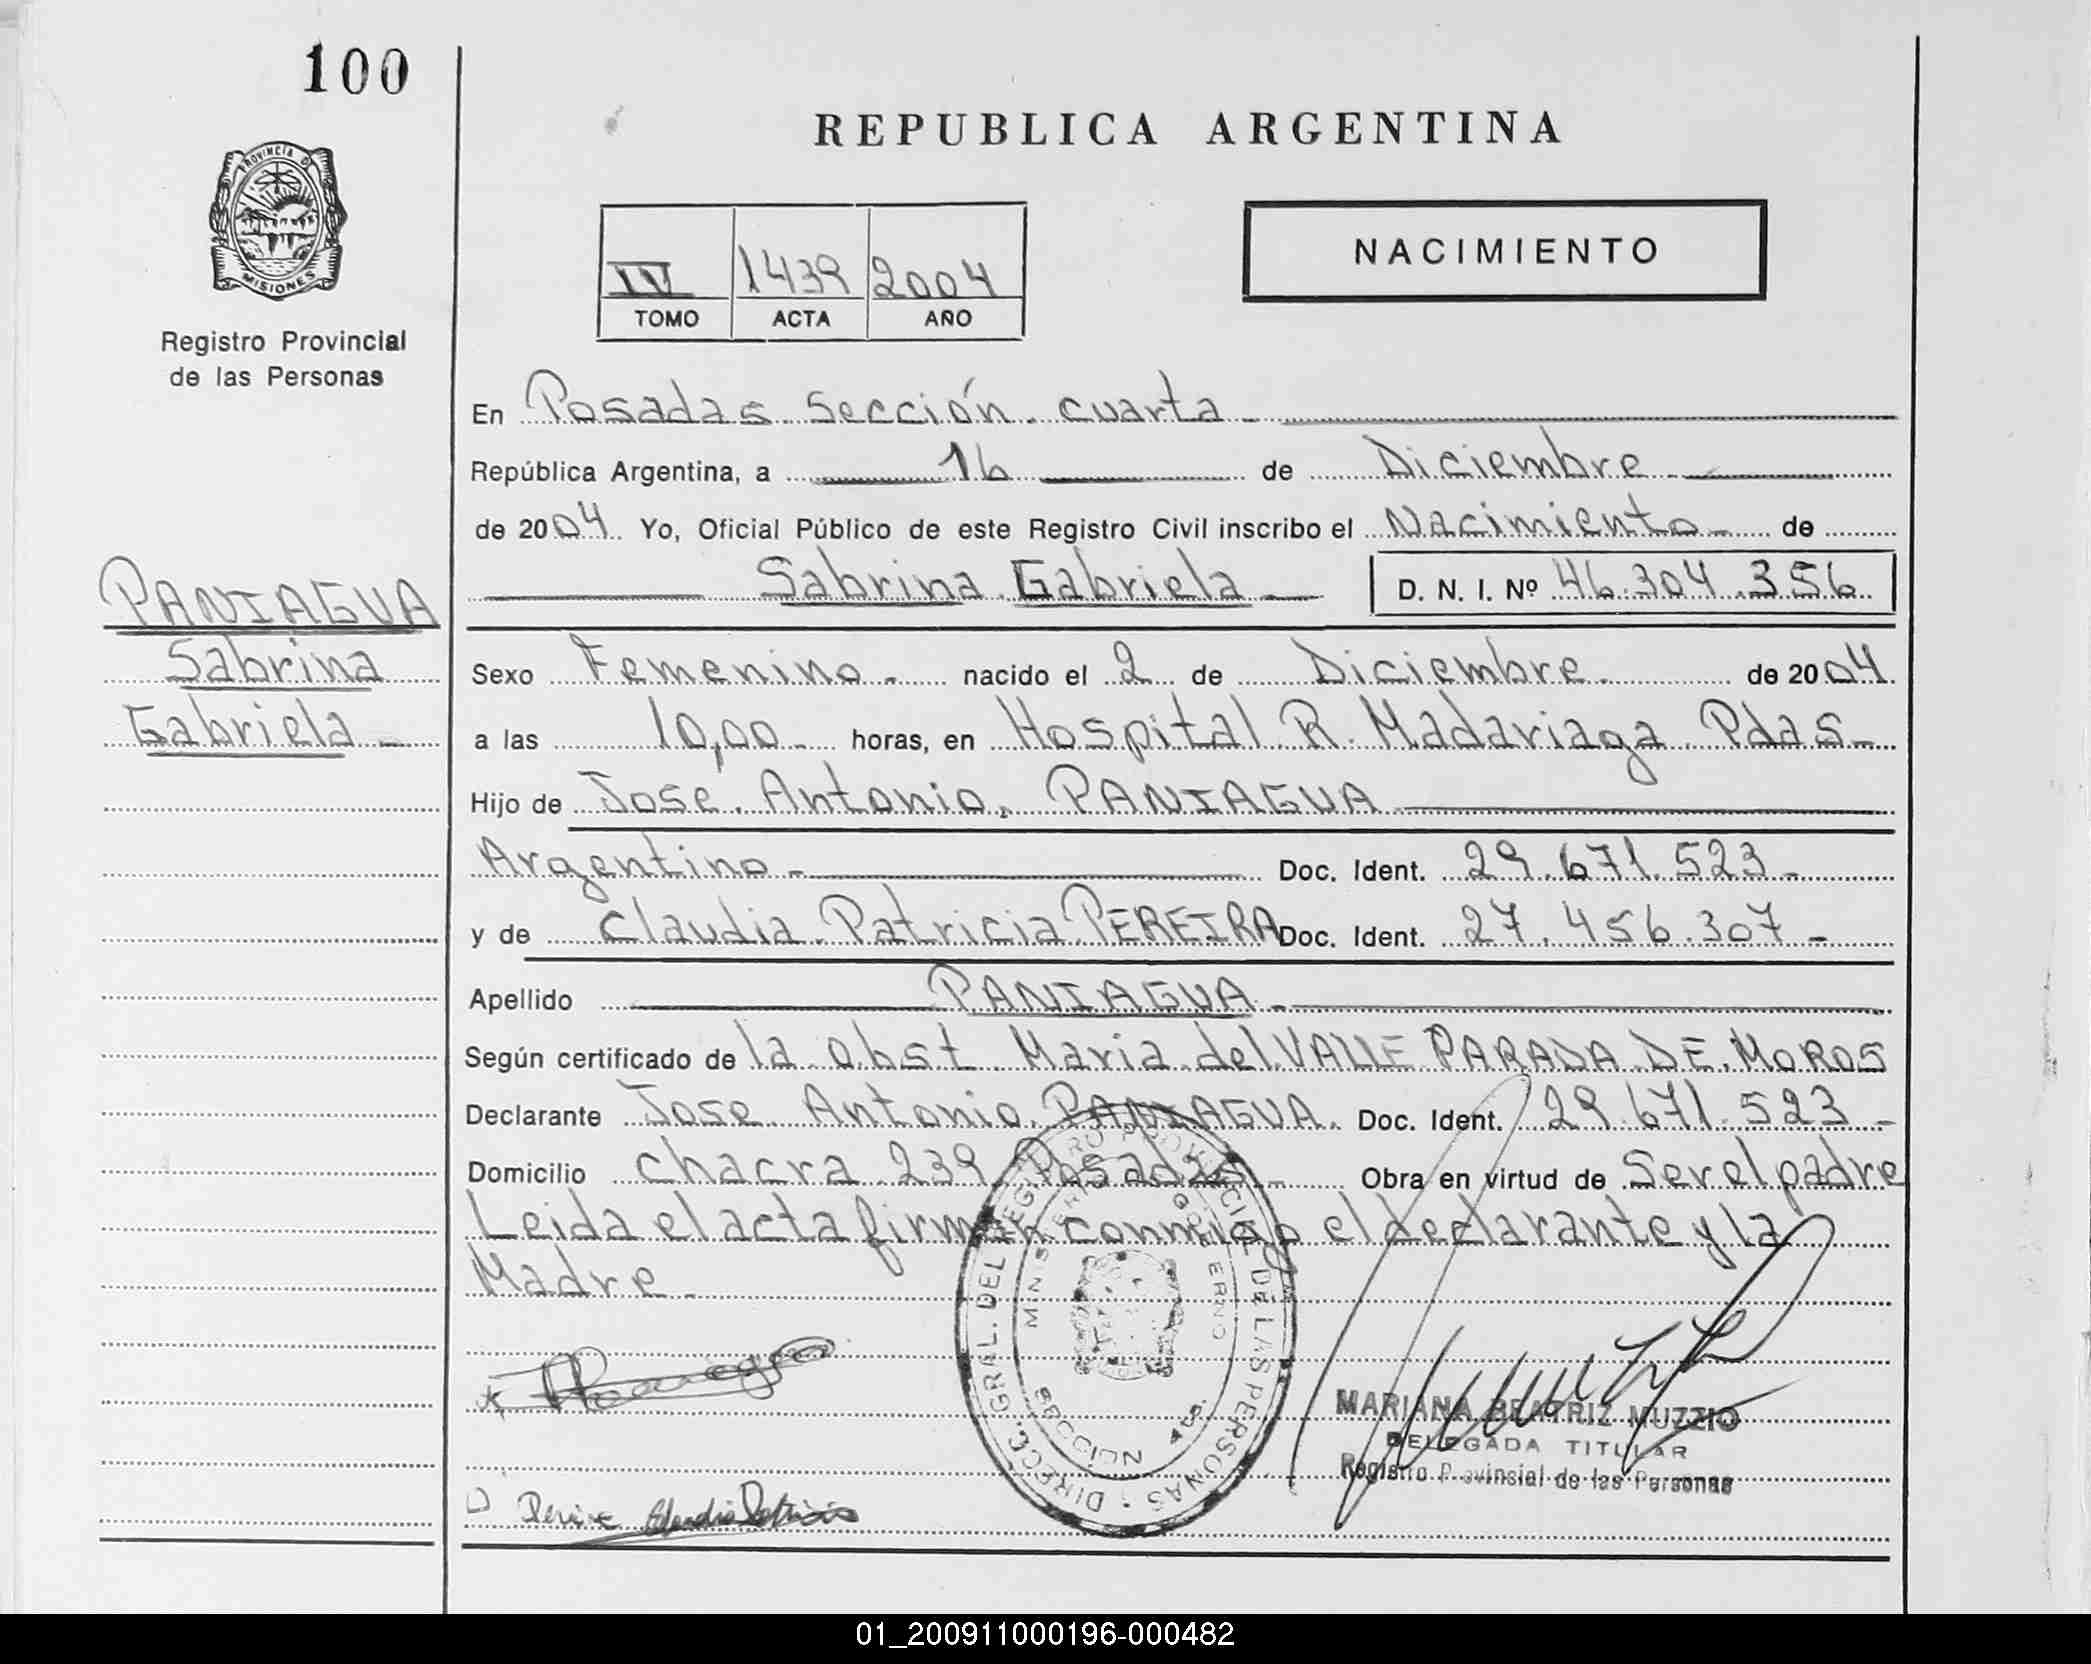 100
REPUBLICA ARGENTINA
PROVINCIA D
MISIONES
Registro Provincial
de las Personas
IV 1439 2004
TOMO ACTA AÑO
NACIMIENTO
En Posadas Sección cuarta
República Argentina, a 16 de Diciembre
de 2004 Yo, Oficial Público de este Registro Civil inscribo el Nacimiento de
Sabrina Gabriela D. N. I. Nº 46.304.356
PANIAGUA
Sabrina
Gabriela
Sexo Femenino nacido el 2 de Diciembre de 2004
a las 10,00 horas, en Hospital R. Madariaga Pdas
Hijo de José Antonio PANIAGUA
Argentino Doc. Ident. 29.671.523
y de Claudia Patricia PEREIRA Doc. Ident. 27.456.307
Apellido PANIAGUA
Según certificado de la obst Maria del VALLE PARADA DE MOROS
Declarante Jose Antonio PANIAGUA. Doc. Ident. 29.671.523
Domicilio chacra 239 Posadas Obra en virtud de Ser el padre
Leida el acta firman conmigo el declarante y la
Madre
DIRECC. GRAL. DEL REGISTRO PROVINCIAL DE LAS PERSONAS
MINISTERIO GOBIERNO
MARIANA BEATRIZ MUZZIO
DELEGADA TITULAR
Registro Provinsial de las Personas
01_200911000196-000482